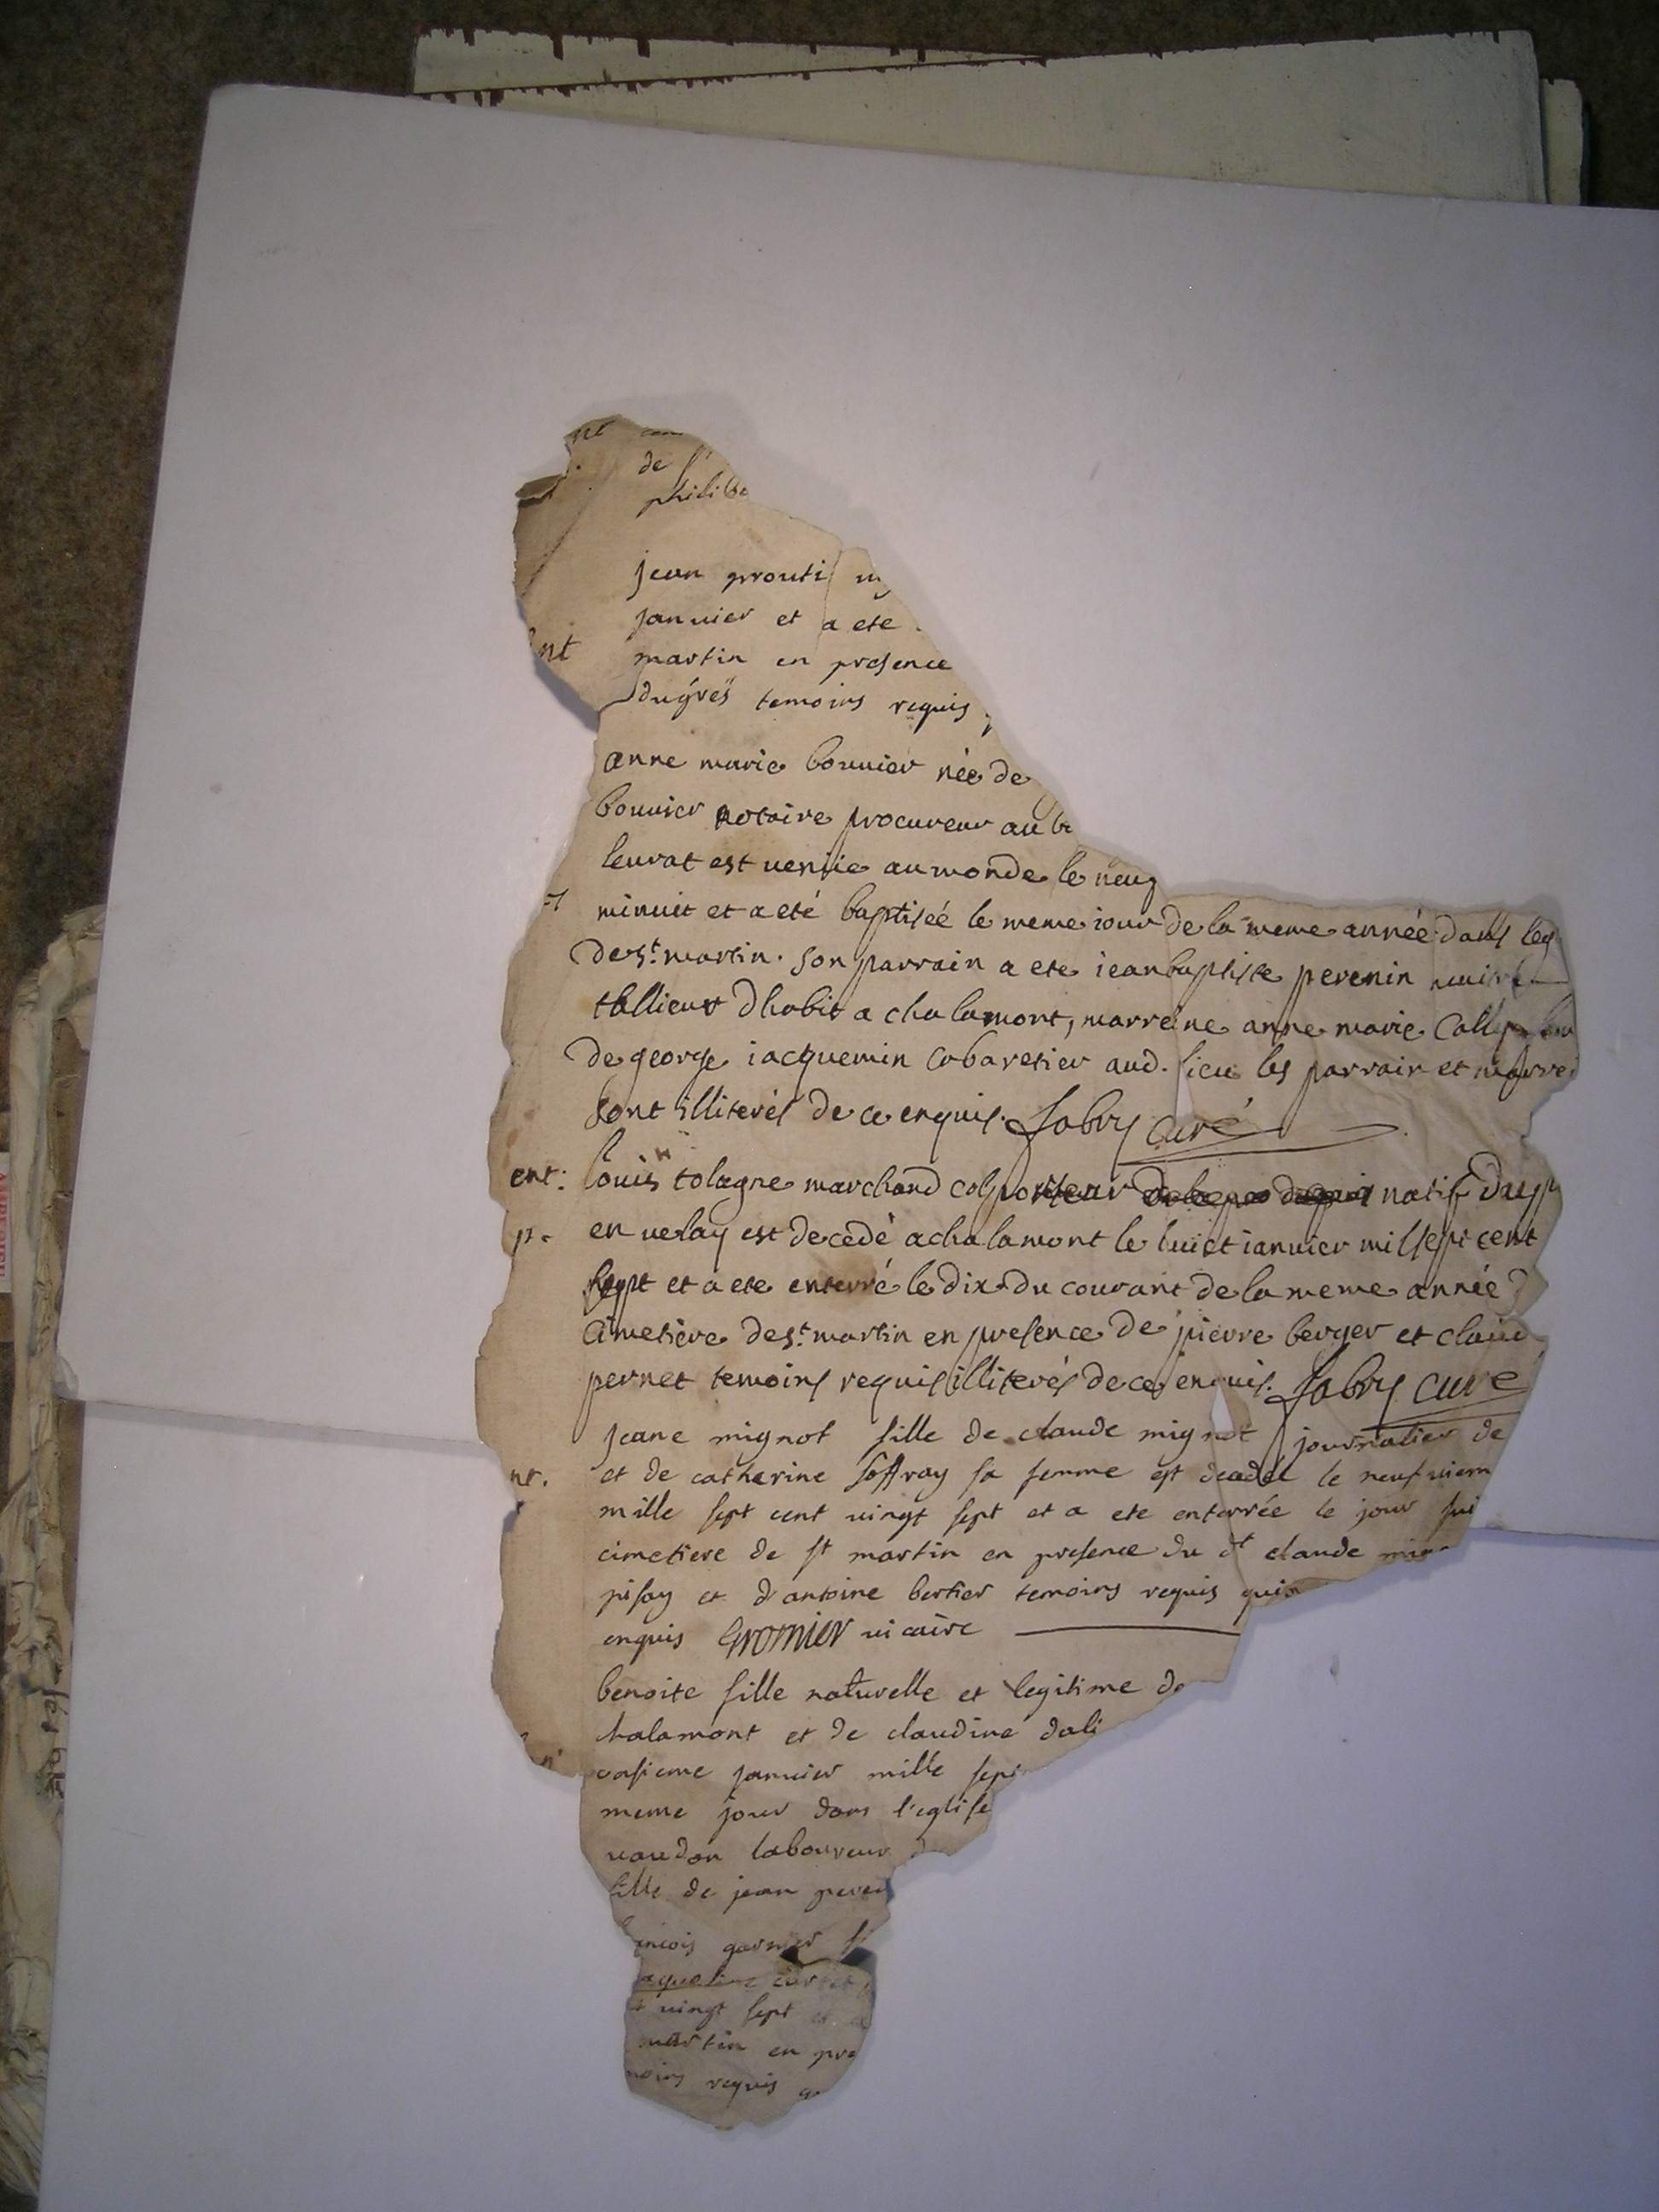 nt
de
philibe
jean prouti
januier et a ete
nt martin en presence
dugres temoins requis
anne marie bouuier née de
bouuier notaire procureur au
leurat est venüe au monde le neuf
minuit et a eté baptiséé le meme iour de la meme année dans leg
de st. martin. son parrain a ete iean baptiste perenin
tallieur dhabit a chalamont, marreine anne marie
de george iacquemin cabaretier aud. lieu les parrain et marrei
sont illiterés de ce enquis. fabry curé
ent: louis tolagne marchand colporteur natif du
p. en velay est decedé a chalamont le huict ianuier mil sept cent
sept et a ete enterré le dix du courant de la meme année
cimetiere de st. martin en presence de pierre berger et claud
pernet temoins requis illiterés de ce enquis. fabry curé
jeane mignot fille de claude mignot journalier de
nt. et de catherine soffray sa femme est decedée le neufuiem
mille sept cent uingt sept et a ete enterrée le jour sui
cimetiere de st martin en presence du dt claude mign
pisay et d'antoine bertier temoins requis
enquis Gromier uicaire
benoite fille naturelle et legitime de
halamont et de claudine dali
onsieme januier mille sept
meme jour dans l'eglise
uaudon laboureur
fille de jean peren
ancois garnier
t uingt sept
martin en pre
moins requis